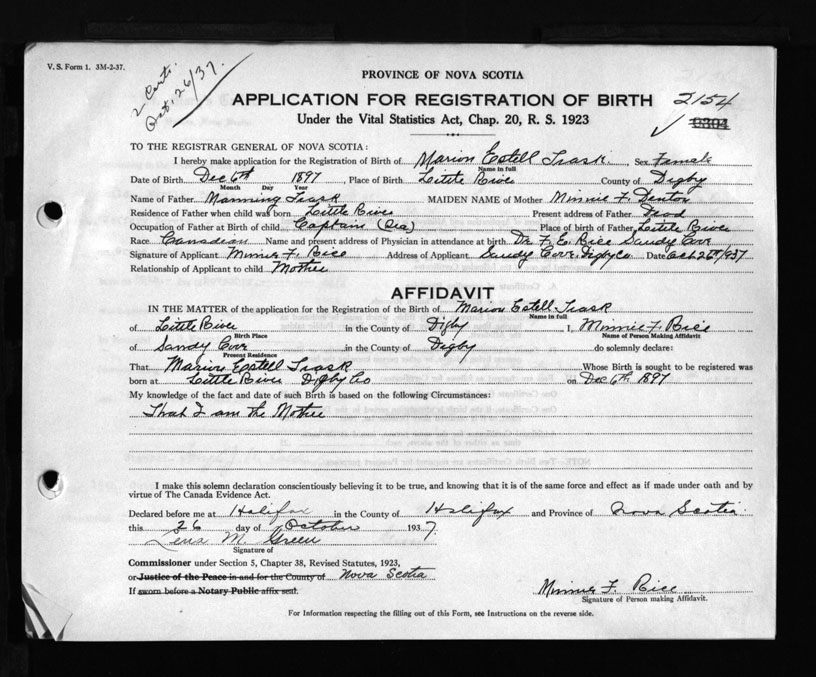 V. S. Form 1. 3M-2-37.
2 Certs.
Oct. 26/37.
PROVINCE OF NOVA SCOTIA
APPLICATION FOR REGISTRATION OF BIRTH 2154
Under the Vital Statistics Act, Chap. 20, R. S. 1923 ✓
TO THE REGISTRAR GENERAL OF NOVA SCOTIA:
I hereby make application for the Registration of Birth of Marion Estell Trask Sex Female
Name in full
Date of Birth Dec 6th 1897, Place of Birth Little River County of Digby
Month Day Year
Name of Father Manning Trask MAIDEN NAME of Mother Minnie F. Denton
Residence of Father when child was born Little River Present address of Father Dead
Occupation of Father at Birth of child Captain (Sea) Place of birth of Father Little River
Race Canadian Name and present address of Physician in attendance at birth Dr. F. E. Rice Sandy Cove
Signature of Applicant Minnie F. Rice Address of Applicant Sandy Cove, Digby Co. Date Oct 26th/937
Relationship of Applicant to child Mother
AFFIDAVIT
IN THE MATTER of the application for the Registration of the Birth of Marion Estell Trask
Name in full
of Little River in the County of Digby I, Minnie F. Rice
Birth Place Name of Person Making Affidavit
of Sandy Cove in the County of Digby do solemnly declare:
Present Residence
That Marion Estell Trask Whose Birth is sought to be registered was
born at Little River Digby Co on Dec 6th 1897
My knowledge of the fact and date of such Birth is based on the following Circumstances:
That I am the Mother
I make this solemn declaration conscientiously believing it to be true, and knowing that it is of the same force and effect as if made under oath and by
virtue of The Canada Evidence Act.
Declared before me at Halifax in the County of Halifax and Province of Nova Scotia
this 26 day of October 1937.
Lena M. Green
Signature of
Commissioner under Section 5, Chapter 38, Revised Statutes, 1923,
or Justice of the Peace in and for the County of Nova Scotia
If sworn before a Notary Public affix seal.
Minnie F. Rice
Signature of Person making Affidavit.
For Information respecting the filling out of this Form, see Instructions on the reverse side.